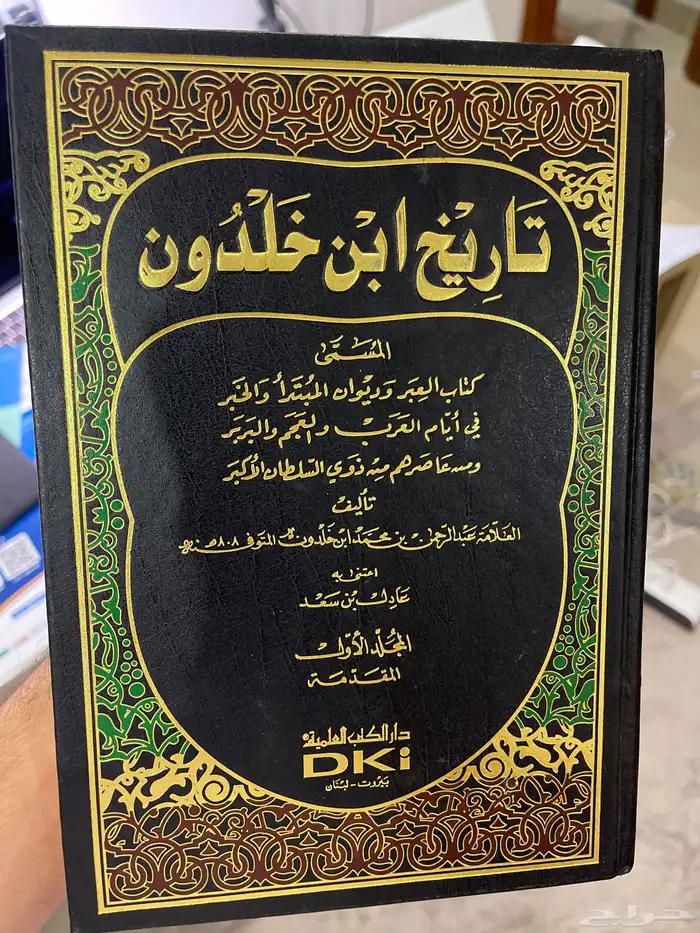 تَارِيْخ ابْن خَلْدُون
المُسَمَّى
كتاب العِبَر وَديوان المُبتَدأ وَالخَبَر
في أيّام العَرَب وَالعَجَم وَالبَربَر
ومن عاصرهم من ذَوي السّلطان الأكبَر
تأليف
العَلّامَة عَبْد الرّحمٰن بن محمَّد ابْن خَلدُون المتوفى ٨٠٨هـ
اعتنى به
عَادل بن سَعد
المُجَلّد الأوّل
المقدّمَة
دار الكتب العلمية
DKi
بَيْرُوت - لبْنَان
حراج